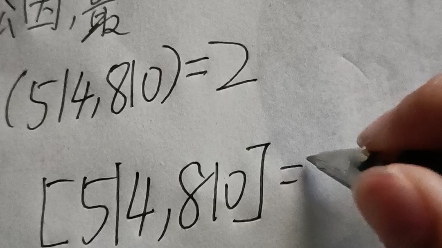 公因,最
(514,810)=2
[514,810]=